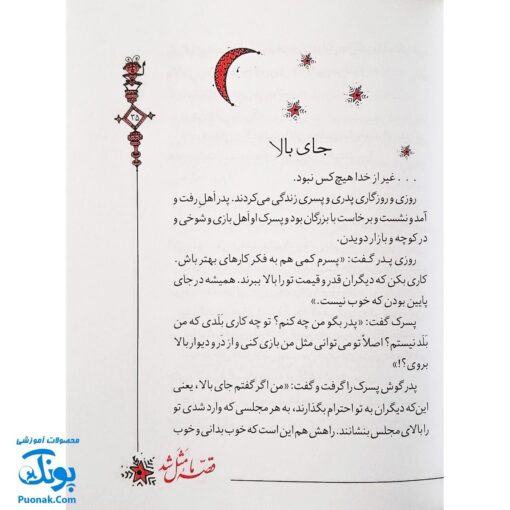 ۳۵
جای بالا
... غیر از خدا هیچ کس نبود.
روزی و روزگاری پدری و پسری زندگی می‌کردند. پدر اهل رفت و
آمد و نشست و برخاست با بزرگان بود و پسرک او اهل بازی و شوخی و
در کوچه و بازار دویدن.
روزی پدر گفت: «پسرم کمی هم به فکر کارهای بهتر باش.
کاری بکن که دیگران قدر و قیمت تو را بالا ببرند. همیشه در جای
پایین بودن که خوب نیست.»
پسرک گفت: «پدر بگو من چه کنم؟ تو چه کاری بَلَدی که من
بَلَد نیستم؟ اصلاً تو می توانی مثل من بازی کنی و از دَر و دیوار بالا
بروی؟!»
پدر گوش پسرک را گرفت و گفت: «من اگر گفتم جای بالا، یعنی
این‌که دیگران به تو احترام بگذارند، به هر مجلسی که وارد شدی تو
را بالای مجلس بنشانند. راهش هم این است که خوب بدانی و خوب
قصه ما مَثَل شد
محصولات آموزشی
پونک
Puonak.Com